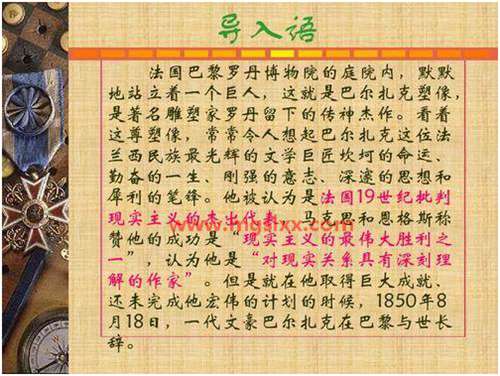 导入语
法国巴黎罗丹博物院的庭院内，默默
地站立着一个巨人，这就是巴尔扎克塑像，
是著名雕塑家罗丹留下的传神杰作。看着
这尊塑像，常常令人想起巴尔扎克这位法
兰西民族最光辉的文学巨匠坎坷的命运、
勤奋的一生、刚强的意志、深邃的思想和
犀利的笔锋。他被认为是法国19世纪批判
现实主义的杰出代表。马克思和恩格斯称
赞他的成功是“现实主义的最伟大胜利之
一”，认为他是“对现实关系具有深刻理
解的作家”。但是就在他取得巨大成就、
还未完成他宏伟的计划的时候，1850年8
月18日，一代文豪巴尔扎克在巴黎与世长
辞。